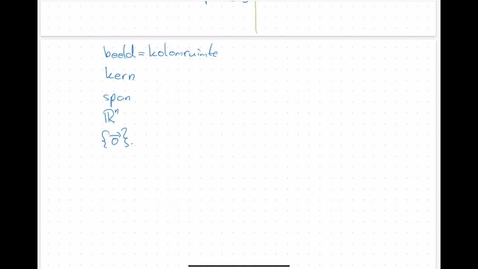 beeld = kolomruimte
kern
span
ℝⁿ
{0⃗}.